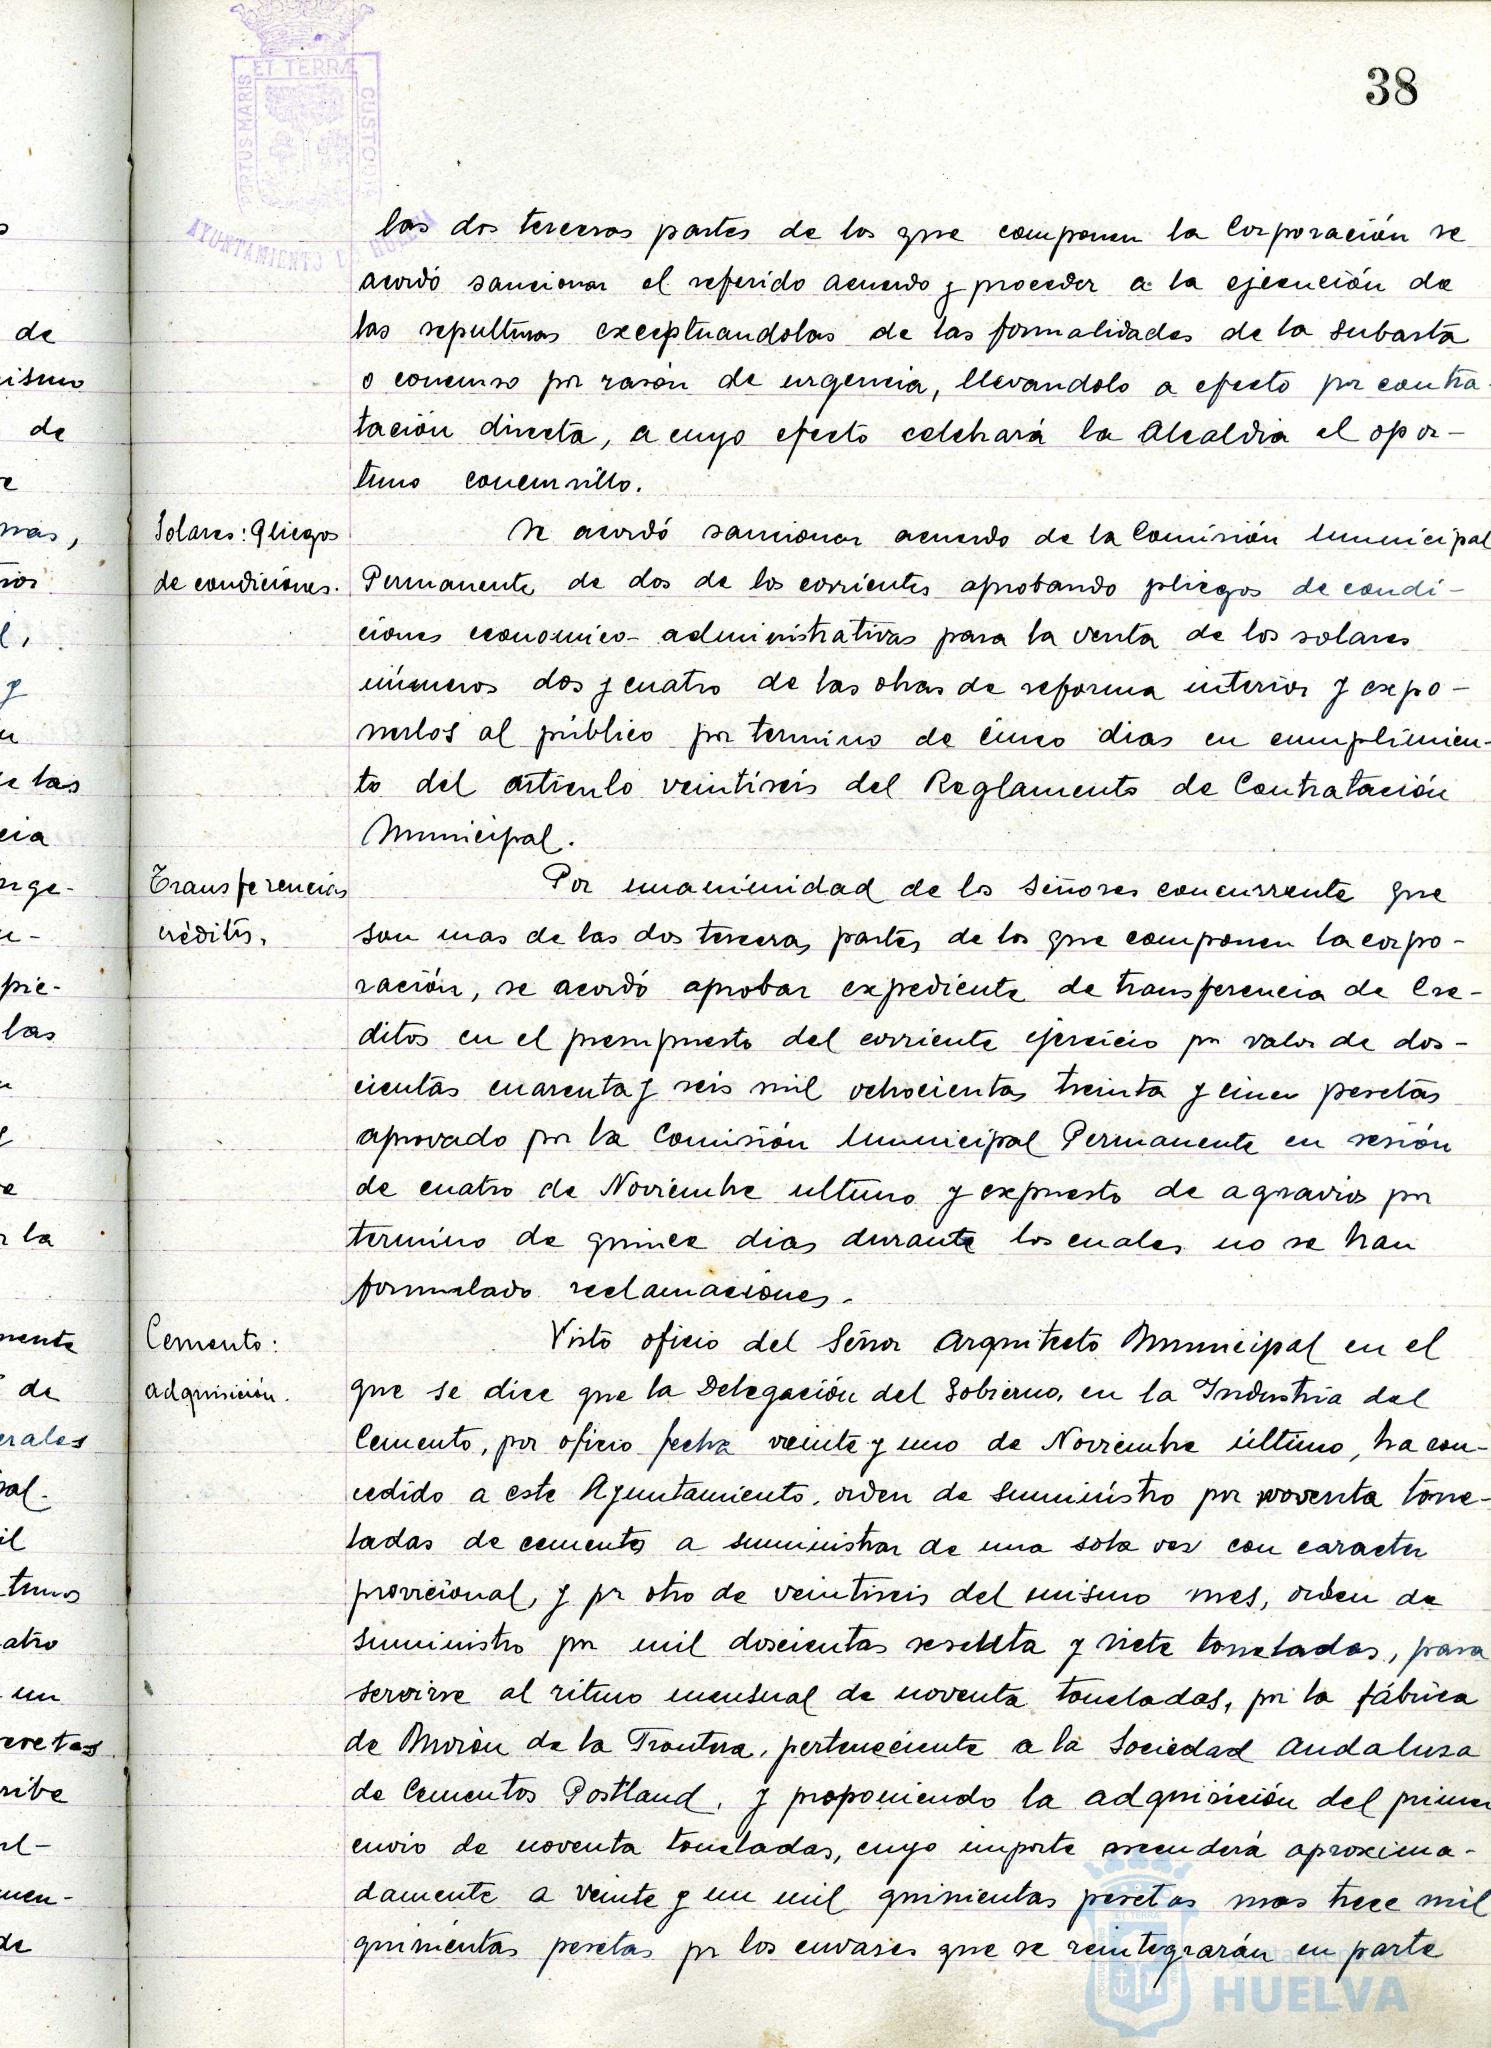 38
PORTUS MARIS ET TERRÆ CUSTODIA
AYUNTAMIENTO HUELVA
las dos terceras partes de los que componen la Corporación se
acordó sancionar el referido acuerdo y proceder a la ejecución de
las sepulturas exceptuandolas de las formalidades de la subasta
o concurso por rasón de urgencia, llevandolo a efecto por contra-
tación directa, a cuyo efecto celebrará la Alcaldia el opor-
tuno concursillo.
Solares: Pliegos
de condiciones.
Se acordó sancionar acuerdo de la Comisión Municipal
Permanente de dos de los corrientes aprobando pliegos de condi-
ciones economico-administrativas para la venta de los solares
números dos y cuatro de las obras de reforma interior y expo-
nerlos al público por termino de cinco dias en cumplimien-
to del artículo veintiseis del Reglamento de Contratación
Municipal.
Transferencias
créditos.
Por unanimidad de los Señores concurrente que
son mas de las dos terceras partes de los que componen la corpo-
ración, se acordó aprobar expediente de transferencia de Cre-
ditos en el presupuesto del corriente ejercicio por valor de dos-
cientas cuarenta y seis mil ochocientas treinta y cinco pesetas
aprovado por la Comisión Municipal Permanente en sesión
de cuatro de Noviembre ultimo y expuesto de agravios por
termino de quince dias durante los cuales no se han
formulado reclamaciones.
Cemento:
adquisición.
Visto oficio del Señor Arquitecto Municipal en el
que se dice que la Delegación del Gobierno, en la Industria del
Cemento, por oficio fecha veinte y uno de Noviembre último, ha con-
cedido a este Ayuntamiento, orden de suministro por noventa tone-
ladas de cemento a suministrar de una sola vez con caracter
provicional, y por otro de veintiseis del mismo mes, orden de
suministro por mil doscientas sesenta y siete toneladas, para
servirse al ritmo mensual de noventa toneladas, por la fábrica
de Morón de la Frontera, perteneciente a la Sociedad Andalusa
de Cementos Postland, y proponiendo la adquisición del primer
envio de noventa toneladas, cuyo importe ascenderá aproxima-
damente a veinte y un mil quinientas pesetas mas trece mil
quinientas pesetas por los envases que se reintegrarán en parte
Ayuntamiento de
HUELVA